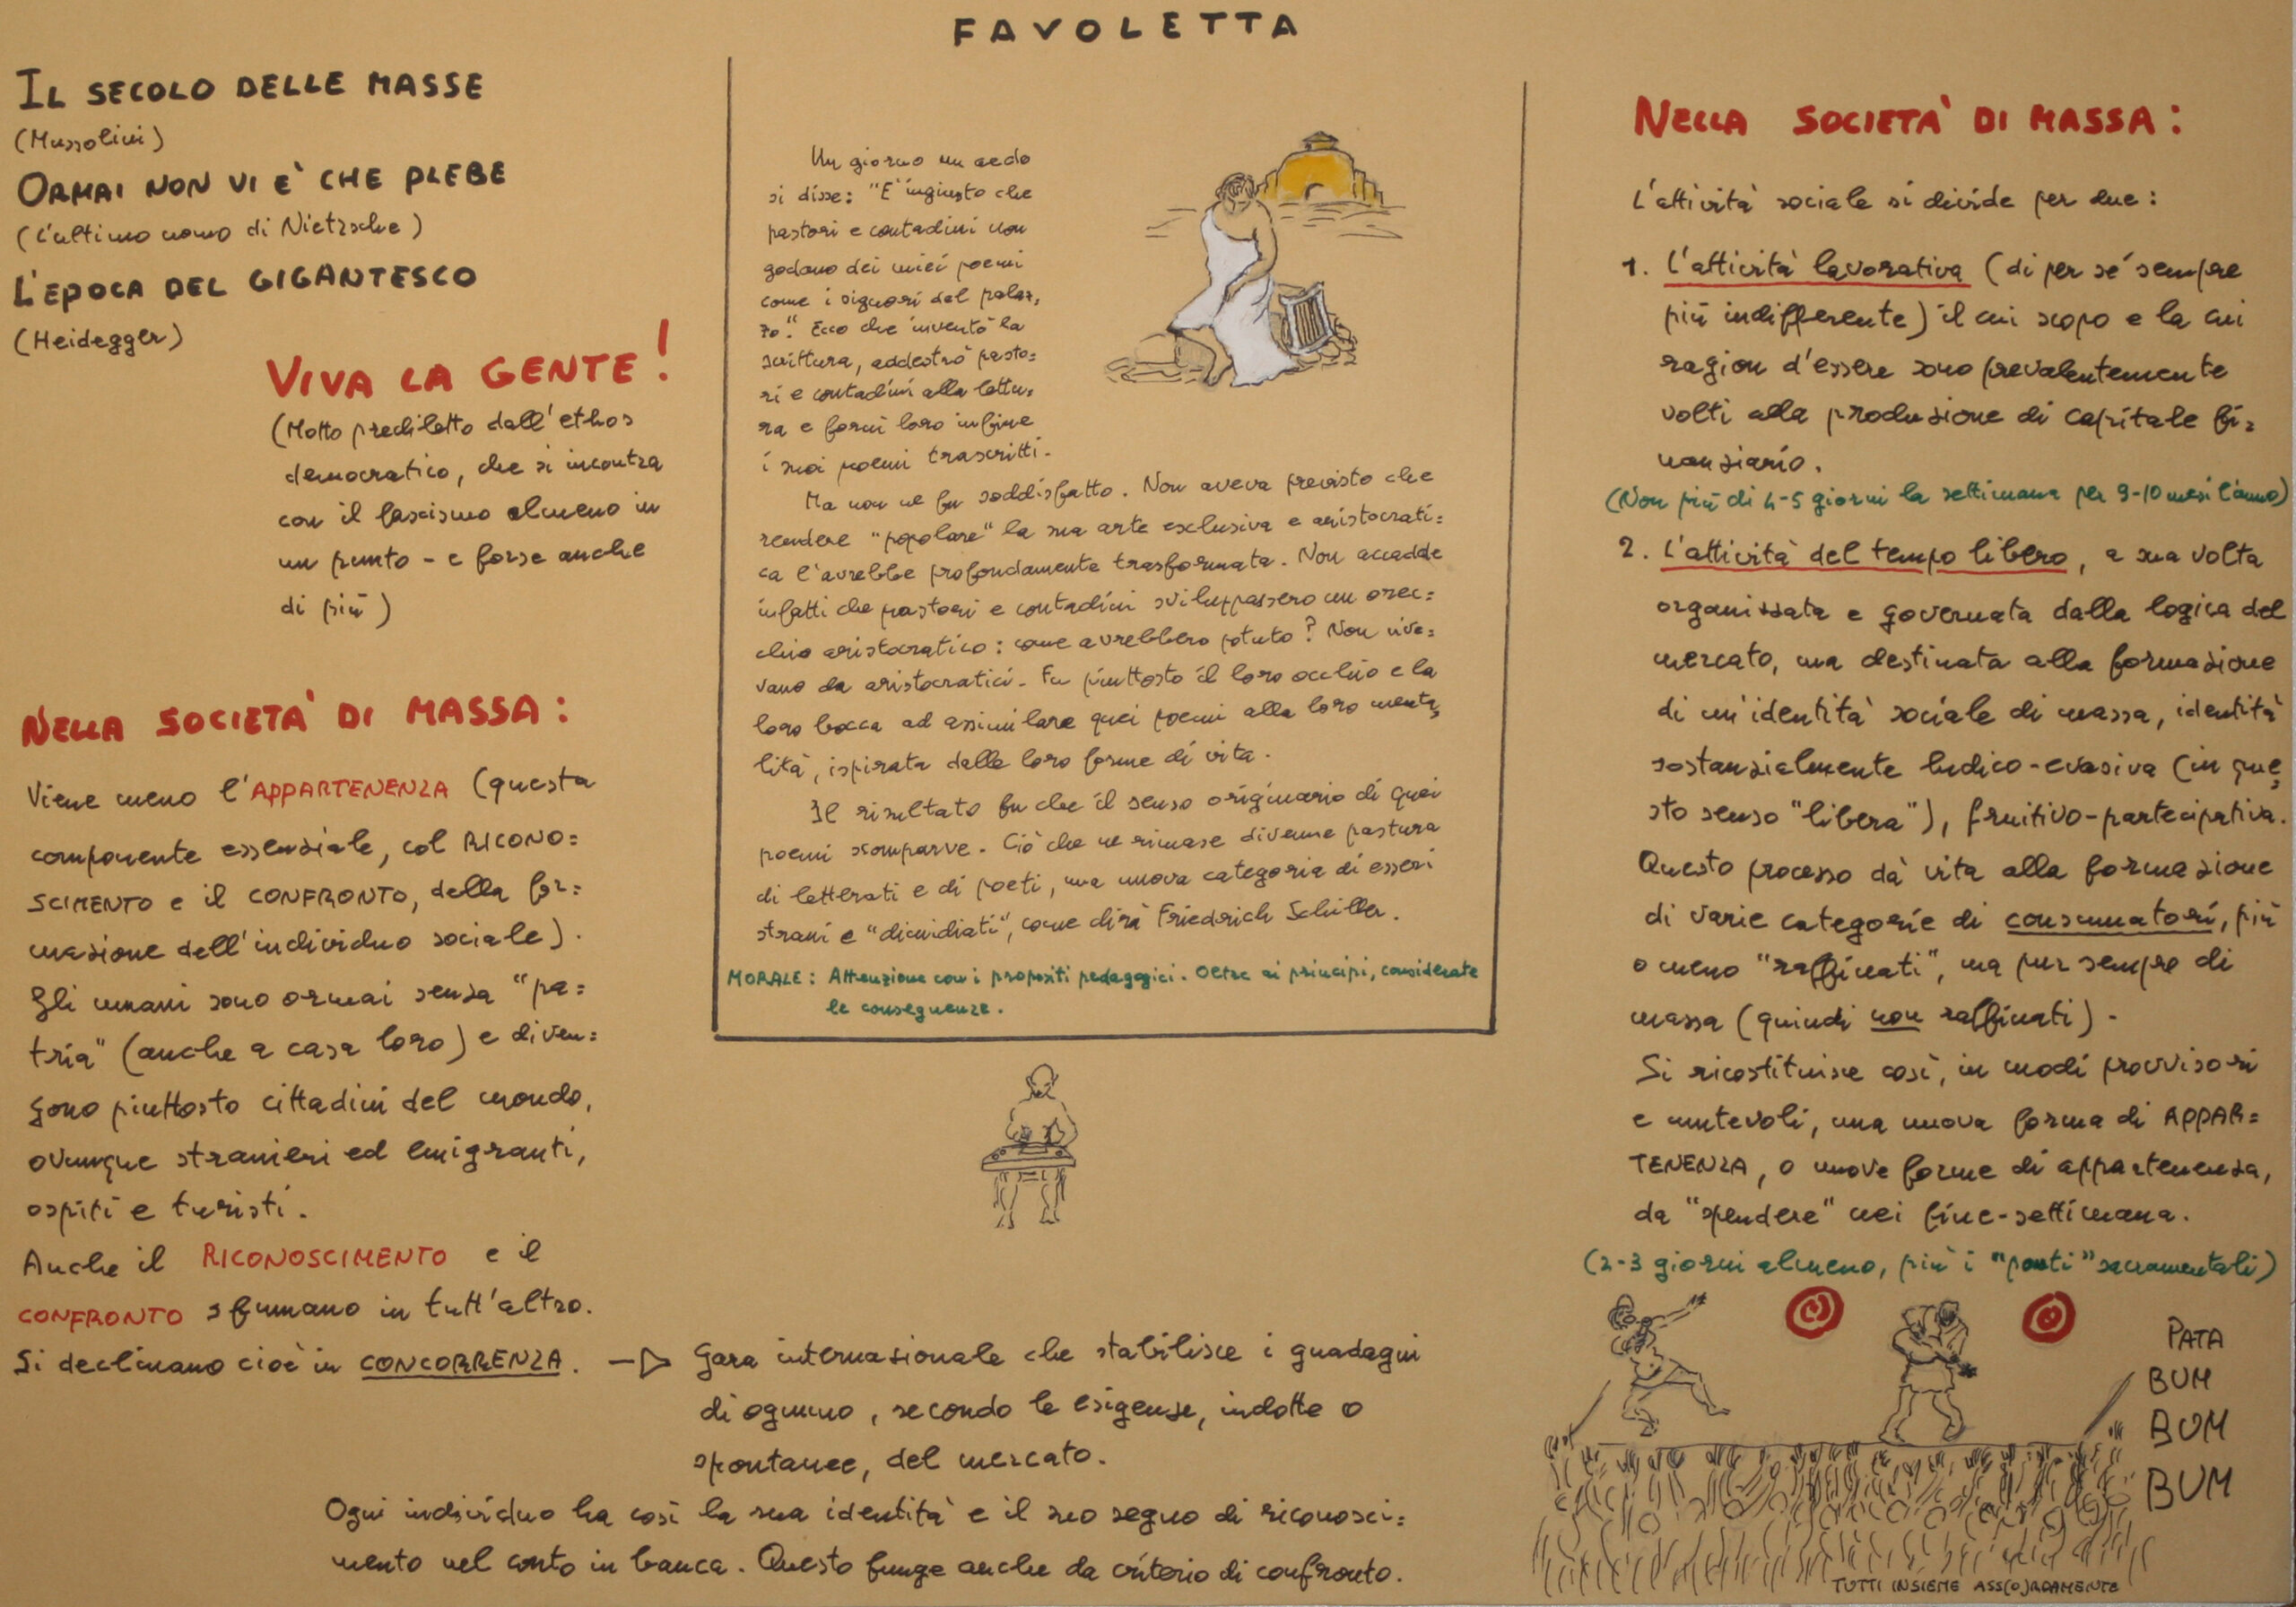 FAVOLETTA
IL SECOLO DELLE MASSE
(Mussolini)
ORMAI NON VI E' CHE PLEBE
(L'ultimo uomo di Nietzsche)
L'EPOCA DEL GIGANTESCO
(Heidegger)
VIVA LA GENTE!
(Motto prediletto dall'ethos
democratico, che si incontra
con il fascismo almeno in
un punto - e forse anche
di più)
NELLA SOCIETA' DI MASSA:
Viene meno l'APPARTENENZA (questa
componente essenziale, col RICONO=
SCIMENTO e il CONFRONTO, della for=
mazione dell'individuo sociale).
Gli umani sono ormai senza "pa=
tria" (anche a casa loro) e diven=
gono piuttosto cittadini del mondo,
ovunque stranieri ed emigranti,
ospiti e turisti.
Anche il RICONOSCIMENTO e il
CONFRONTO sfumano in tutt'altro.
Si declinano cioè in CONCORRENZA.
Gara internazionale che stabilisce i guadagni
di ognuno, secondo le esigenze, indotte o
spontanee, del mercato.
Ogni individuo ha così la sua identità e il suo segno di riconosci=
mento nel conto in banca. Questo funge anche da criterio di confronto.
Un giorno un aedo
si disse: "E' ingiusto che
pastori e contadini non
godano dei miei poemi
come i signori del palaz=
zo". Ecco che inventò la
scrittura, addestrò pasto=
ri e contadini alla lettu=
ra e fornì loro infine
i suoi poemi trascritti.
Ma non ne fu soddisfatto. Non aveva previsto che
rendere "popolare" la sua arte esclusiva e aristocrati=
ca l'avrebbe profondamente trasformata. Non accadde
infatti che pastori e contadini sviluppassero un orec=
chio aristocratico: come avrebbero potuto? Non vive=
vano da aristocratici. Fu piuttosto il loro occhio e la
loro bocca ad assimilare quei poemi alla loro menta=
lità, ispirata dalle loro forme di vita.
Il risultato fu che il senso originario di quei
poemi scomparve. Ciò che ne rimase divenne pastura
di letterati e di poeti, una nuova categoria di esseri
strani e "dimidiati", come dirà Friedrich Schiller.
MORALE: Attenzione con i propositi pedagogici. Oltre ai principi, considerate
le conseguenze.
NELLA SOCIETA' DI MASSA:
L'attività sociale si divide per due:
1. L'attività lavorativa (di per sé sempre
più indifferente) il cui scopo e la cui
ragion d'essere sono prevalentemente
volti alla produzione di capitale fi=
nanziario.
(Non più di 4-5 giorni la settimana per 9-10 mesi l'anno)
2. L'attività del tempo libero, a sua volta
organizzata e governata dalla logica del
mercato, ma destinata alla formazione
di un'identità sociale di massa, identità
sostanzialmente ludico-evasiva (in que=
sto senso "libera"), fruitivo-partecipativa.
Questo processo dà vita alla formazione
di varie categorie di consumatori, più
o meno "raffinati", ma pur sempre di
massa (quindi non raffinati).
Si ricostituisce così, in modi provvisori
e mutevoli, una nuova forma di APPAR=
TENENZA, o nuove forme di appartenenza,
da "spendere" nei fine-settimana.
(2-3 giorni almeno, più i "ponti" sacramentali)
PATA
BUM
BUM
BUM
TUTTI INSIEME ASS(O)RDAMENTE